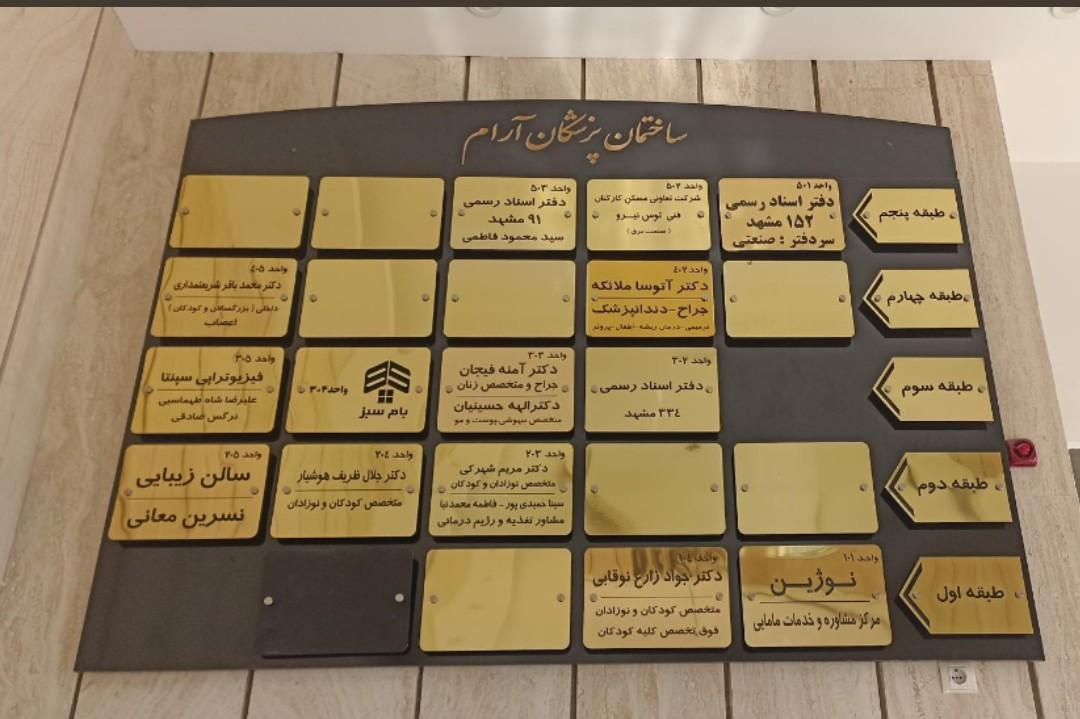 ساختمان پزشکان آرام
طبقه پنجم
واحد ۵۰۱
دفتر اسناد رسمی
۱۵۲ مشهد
سردفتر : صنعتی
واحد ۵۰۲
شرکت تعاونی مسکن کارکنان
فنی توس نیرو
( صنعت برق )
واحد ۵۰۳
دفتر اسناد رسمی
۹۱ مشهد
سید محمود فاطمی
طبقه چهارم
واحد ٤۰۲
دکتر آتوسا ملائکه
جراح-دندانپزشک
ترمیمی-درمان ریشه-اطفال-پروتز
واحد ٤۰۵
دکتر محمد باقر شریعتمداری
داخلی ( بزرگسالان و کودکان )
اعصاب
طبقه سوم
واحد ۳۰۲
دفتر اسناد رسمی
۳۳٤ مشهد
واحد ۳۰۳
دکتر آمنه فیجان
جراح و متخصص زنان
دکتر الهه حسینیان
متخصص بیهوشی،پوست و مو
واحد ۳۰۴
بام سبز
واحد ۳۰۵
فیزیوتراپی سپنتا
علیرضا شاه طهماسبی
نرگس صادقی
طبقه دوم
واحد ۲۰۳
دکتر مریم شهرکی
متخصص نوزادان و کودکان
سینا حمیدی پور - فاطمه محمدنیا
مشاور تغذیه و رژیم درمانی
واحد ۲۰٤
دکتر جلال ظریف هوشیار
متخصص کودکان و نوزادان
واحد ۲۰۵
سالن زیبایی
نسرین معانی
طبقه اول
واحد ۱۰۱
نوژین
مرکز مشاوره و خدمات مامایی
واحد
دکتر جواد زارع نوقابی
متخصص کودکان و نوزادان
فوق تخصص کلیه کودکان